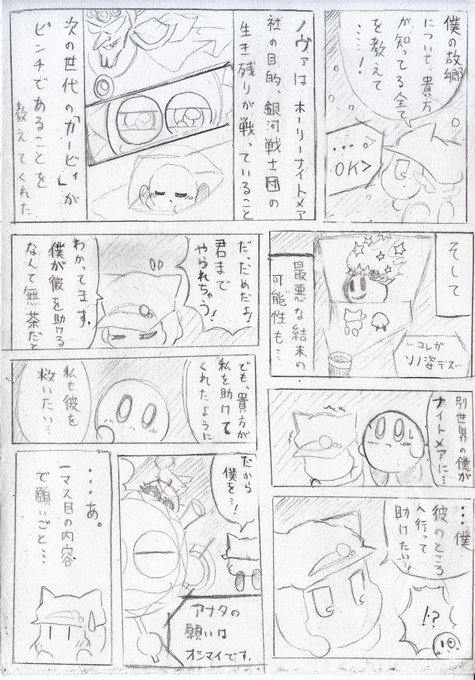 僕の故郷
について、貴方
が知ってる全て
を教えて
……!
・・・。
OK>
ノヴァは ホーリーナイトメア
社の目的、銀河戦士団の
生き残りが戦っていること
次の世代の「カービィ」が
ピンチであることを
教えてくれた
そして
最悪な結末の
可能性も…
…コレガ
ソノ姿デス…
だ、だめだよ!
君まで
やられちゃう!
わかってます。
僕が彼を助ける
なんて無茶だと
別世界の僕が
ナイトメアに…
でも、貴方が
私を助けて
くれたように
私も彼を
救いたい…
…僕
彼のところ
へ行って
助けたい!
!?
だから
僕を…!
アナタの
願いは
オシマイです。
…あ。
一マス目の内容
で願いごと…
10